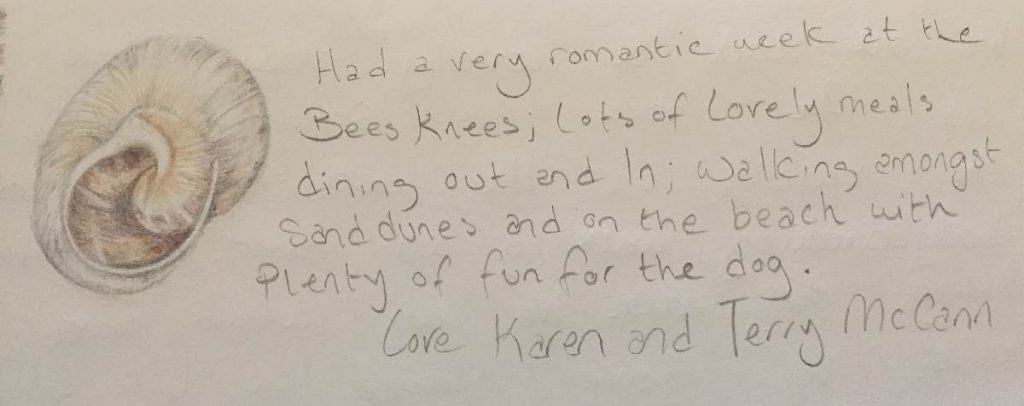 Had a very romantic week at the
Bees Knees; lots of lovely meals
dining out and In; walking amongst
Sanddunes and on the beach with
Plenty of fun for the dog.
Love Karen and Terry McCann